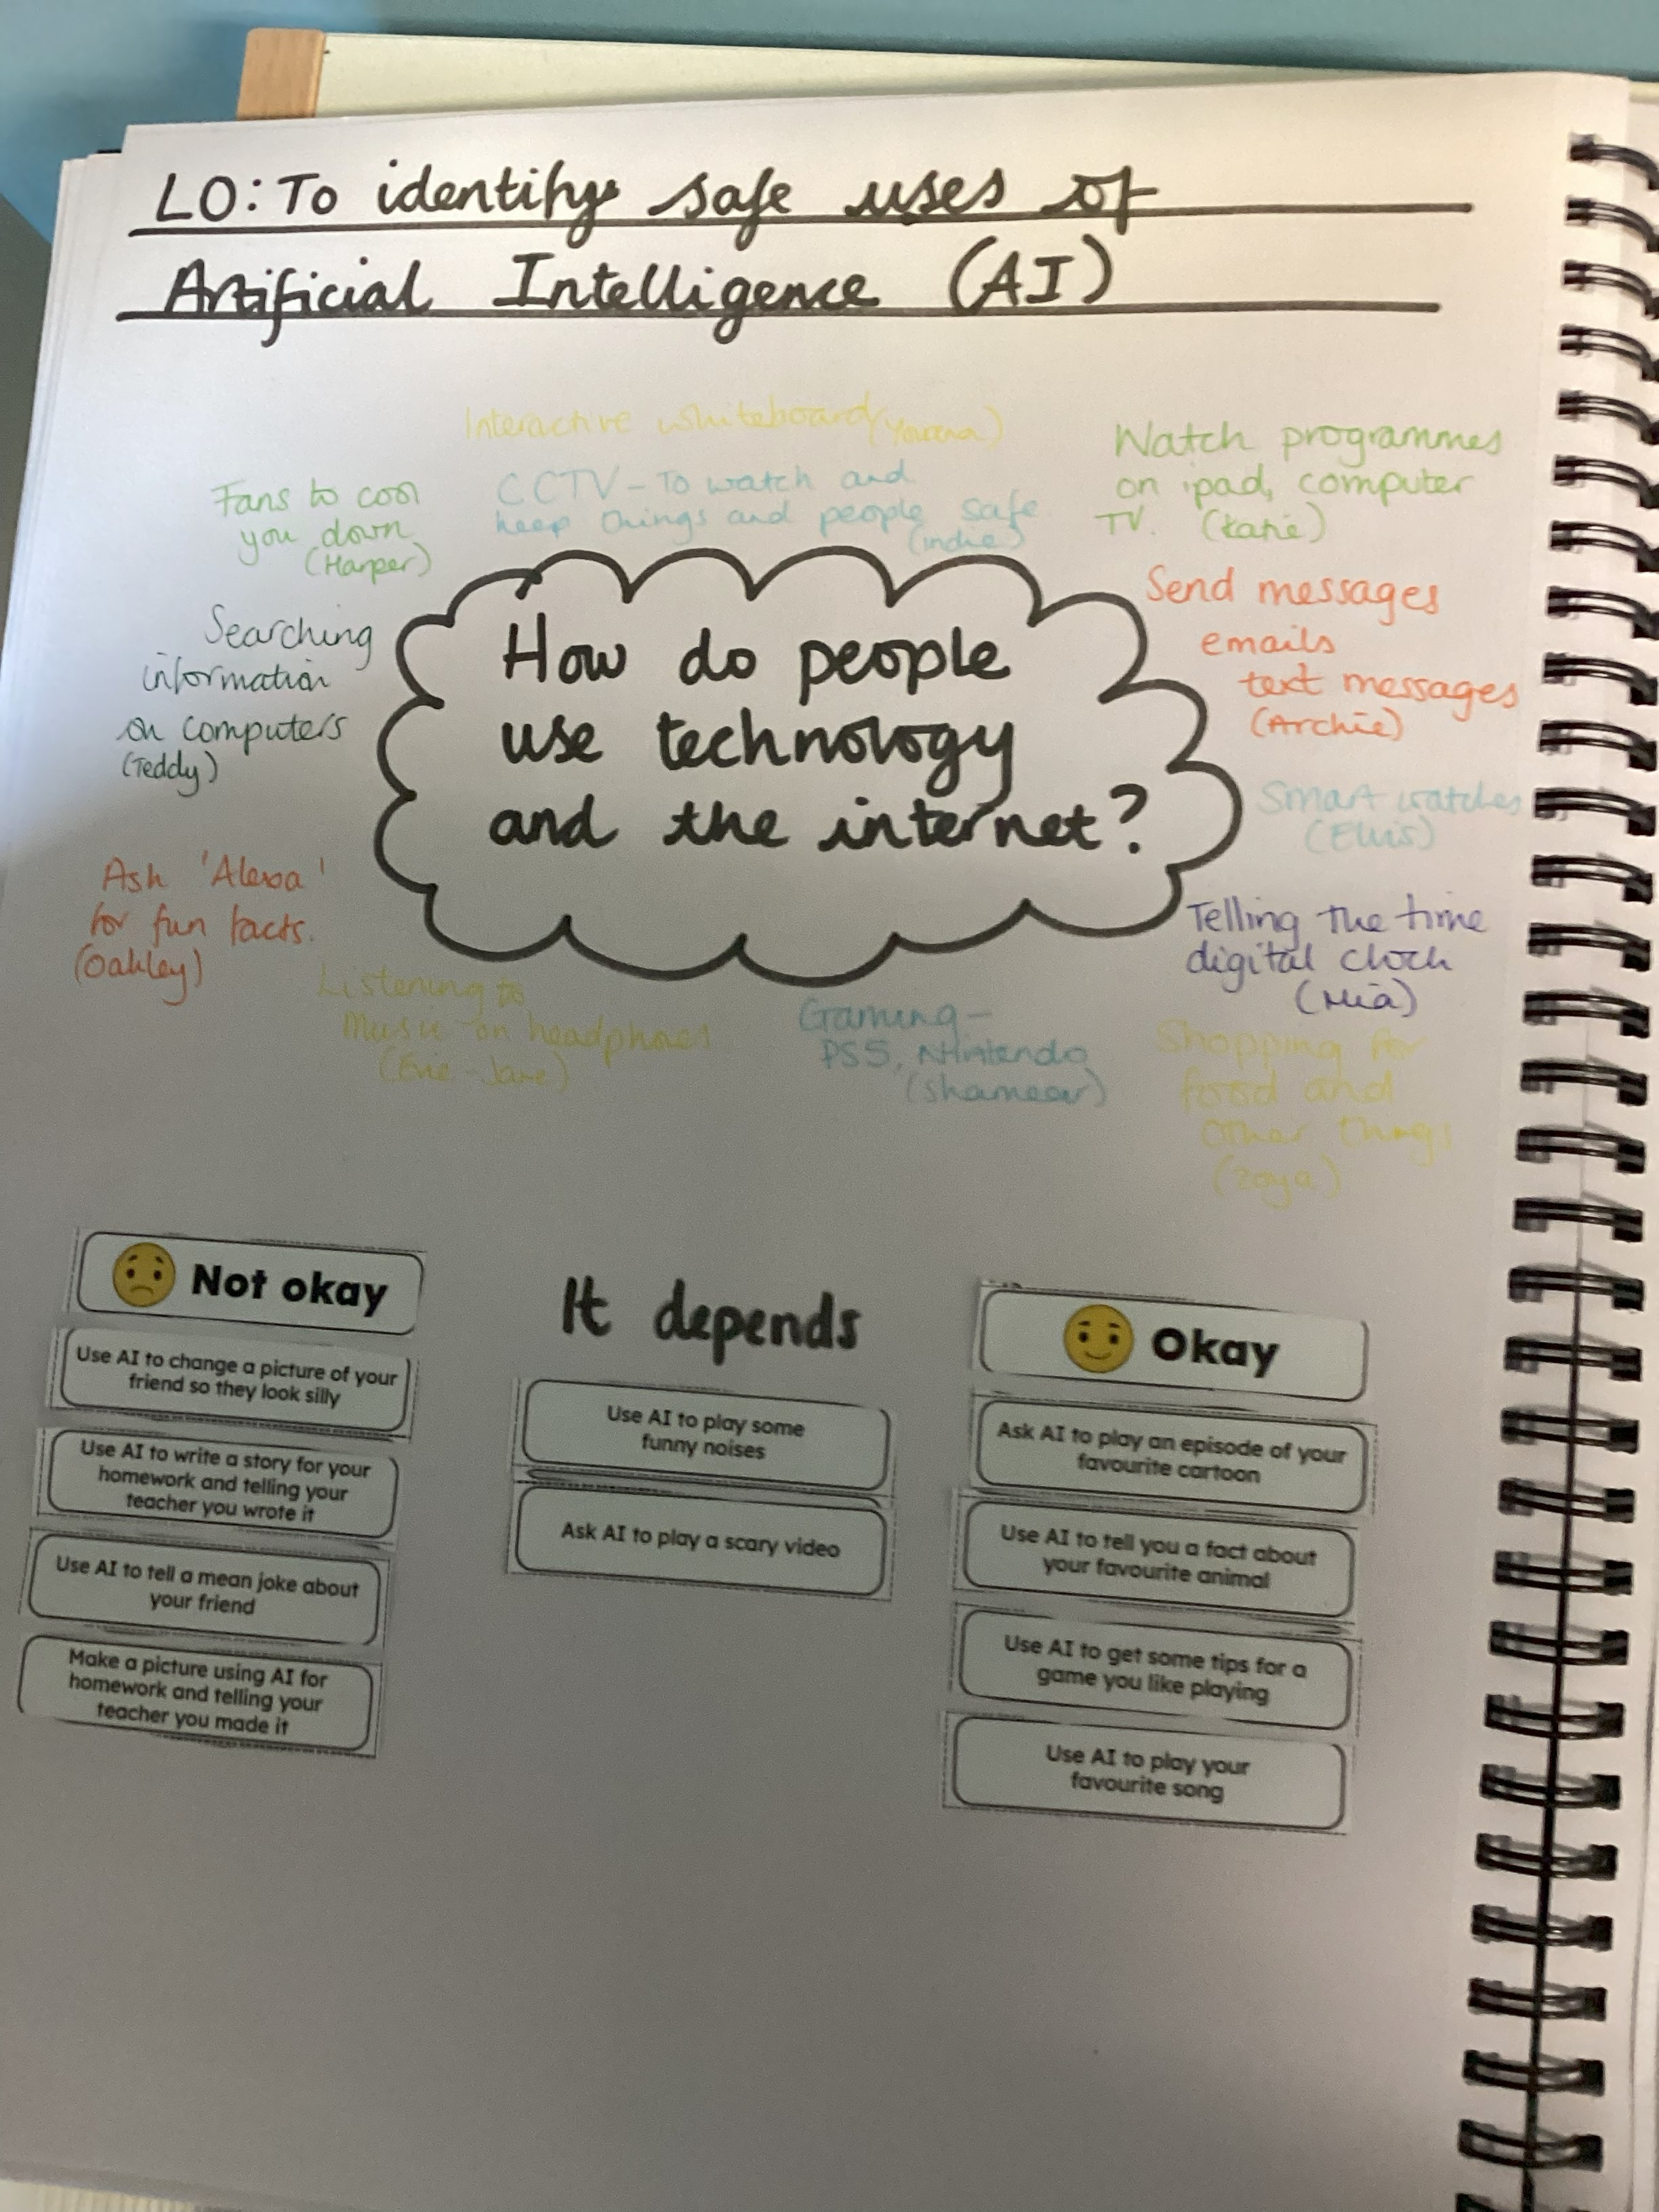 LO: To identify safe uses of
Artificial Intelligence (AI)
Interactive whiteboard
CCTV - To watch and
keep things and people safe
(indie)
Watch programmes
on ipad, computer
TV. (Katie)
Fans to cool
you down
(Harper)
Send messages
emails
text messages
(Archie)
Searching
information
on computers
(Teddy)
How do people
use technology
and the internet?
Smart watches
(Elvis)
Ask 'Alexa'
for fun facts.
(Oakley)
Telling the time
digital clock
(Mia)
Listening to
Music on headphones
(Evie-Jane)
Gaming -
PS5, Nintendo
(Shameer)
Shopping for
food and
other things
(Zoya)
Not okay
Use AI to change a picture of your
friend so they look silly
Use AI to write a story for your
homework and telling your
teacher you wrote it
Use AI to tell a mean joke about
your friend
Make a picture using AI for
homework and telling your
teacher you made it
It depends
Use AI to play some
funny noises
Ask AI to play a scary video
Okay
Ask AI to play an episode of your
favourite cartoon
Use AI to tell you a fact about
your favourite animal
Use AI to get some tips for a
game you like playing
Use AI to play your
favourite song